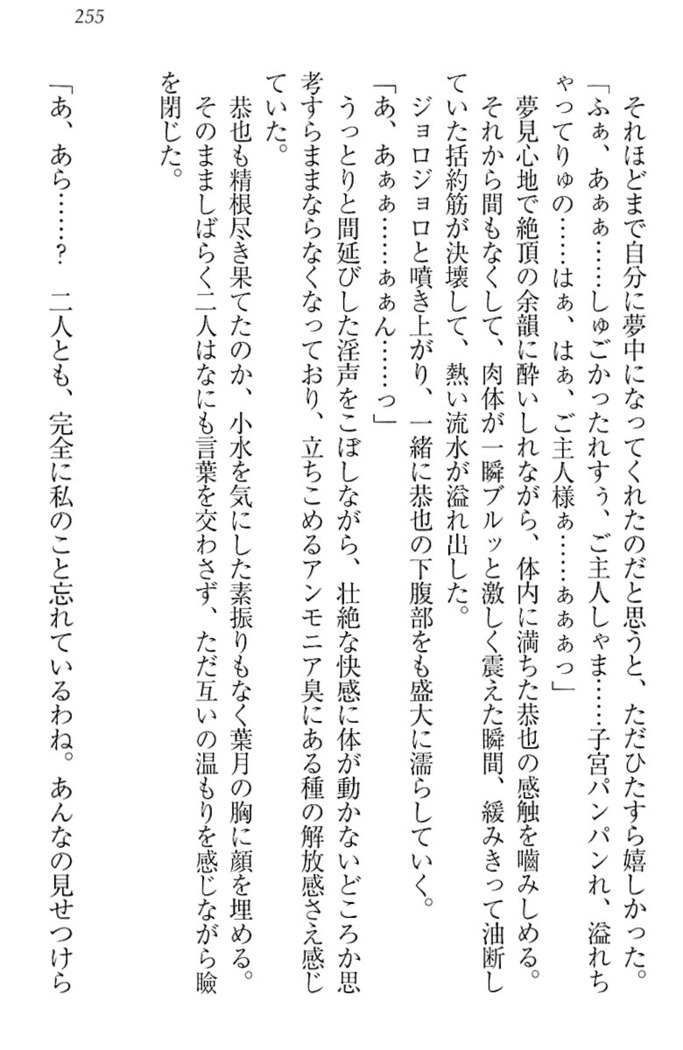 255
それほどまで自分に夢中になってくれたのだと思うと、ただひたすら嬉しかった。
「ふぁ、あぁぁ……しゅごかったれすぅ、ご主人しゃま……子宮パンパンれ、溢れち
ゃってりゅの……はぁ、はぁ、ご主人様ぁ……ぁぁぁっ」
夢見心地で絶頂の余韻に酔いしれながら、体内に満ちた恭也の感触を噛みしめる。
それから間もなくして、肉体が一瞬ブルッと激しく震えた瞬間、緩みきって油断し
ていた括約筋が決壊して、熱い流水が溢れ出した。
ジョロジョロと噴き上がり、一緒に恭也の下腹部をも盛大に濡らしていく。
「あ、あぁぁ……ぁぁん……っ」
うっとりと間延びした淫声をこぼしながら、壮絶な快感に体が動かないどころか思
考すらままならなくなっており、立ちこめるアンモニア臭にある種の解放感さえ感じ
ていた。
恭也も精根尽き果てたのか、小水を気にした素振りもなく葉月の胸に顔を埋める。
そのまましばらく二人はなにも言葉を交わさず、ただ互いの温もりを感じながら瞼
を閉じた。
「あ、あら……？　二人とも、完全に私のこと忘れているわね。あんなの見せつけら